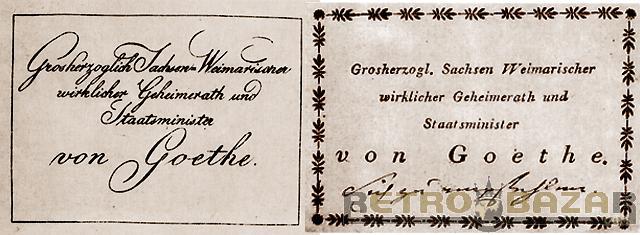 Grosherzoglich Sachsen-Weimarischer
wirklicher Geheimerath und
Staatsminister
von Goethe.
Grosherzogl. Sachsen Weimarischer
wirklicher Geheimerath und
Staatsminister
von Goethe.
RETRO BAZAR